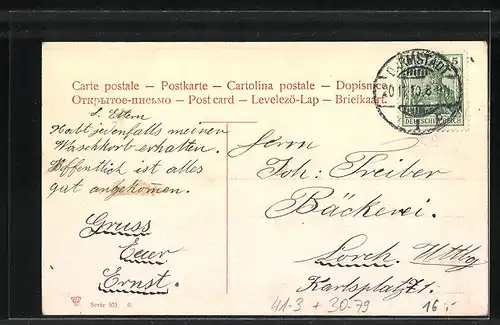 Carte postale – Postkarte – Cartolina postale – Dopisnice
Открытое-письмо – Post card – Levelező-Lap – Briefkaart.
DARMSTADT
5
DEUTSCHES REICH
L. Eltern
Habt jedenfalls meinen
Waschkorb erhalten.
Hoffentlich ist alles
gut angekommen.
Gruss
Euer
Ernst.
Herrn
Joh: Treiber
Bäckerei.
Lorch. Wttbg
Karlsplatz 1.
Serie 521. 6.
41-3 + 30-79
16